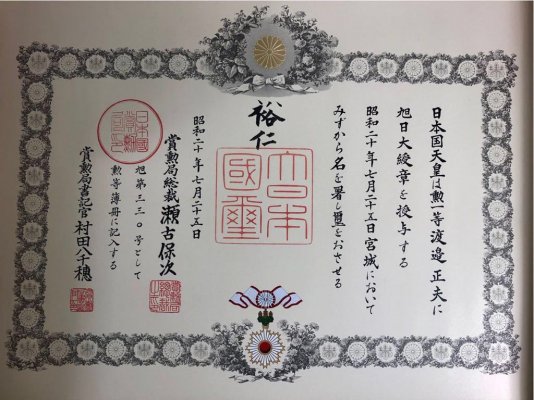 日本国天皇は勲一等渡邉正夫に
旭日大綬章を授与する
昭和二十年七月二十五日宮城において
みずから名を署し璽をおさせる
裕仁
大日本國璽
昭和二十年七月二十五日
賞勲局総裁瀬古保次
旭第三三〇号として
勲等簿冊に記入する
賞勲局書記官村田八千穂
日本國賞勲局印